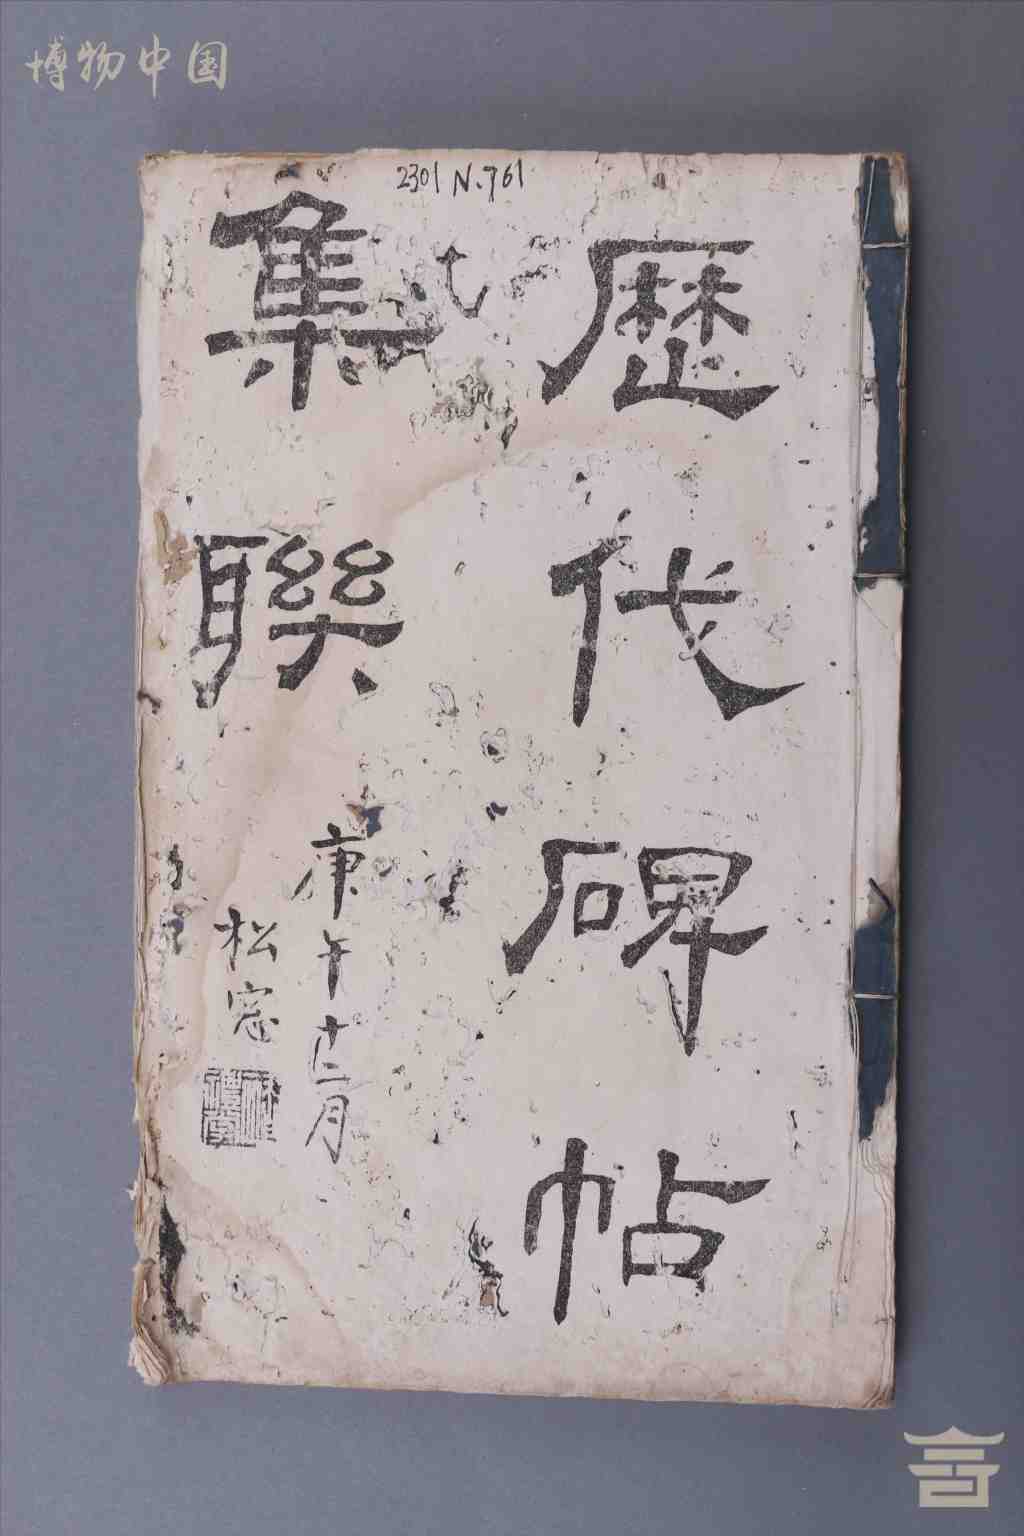 博物中国
2301 N.761
歷代碑帖
集聯
庚午十二月
松窓